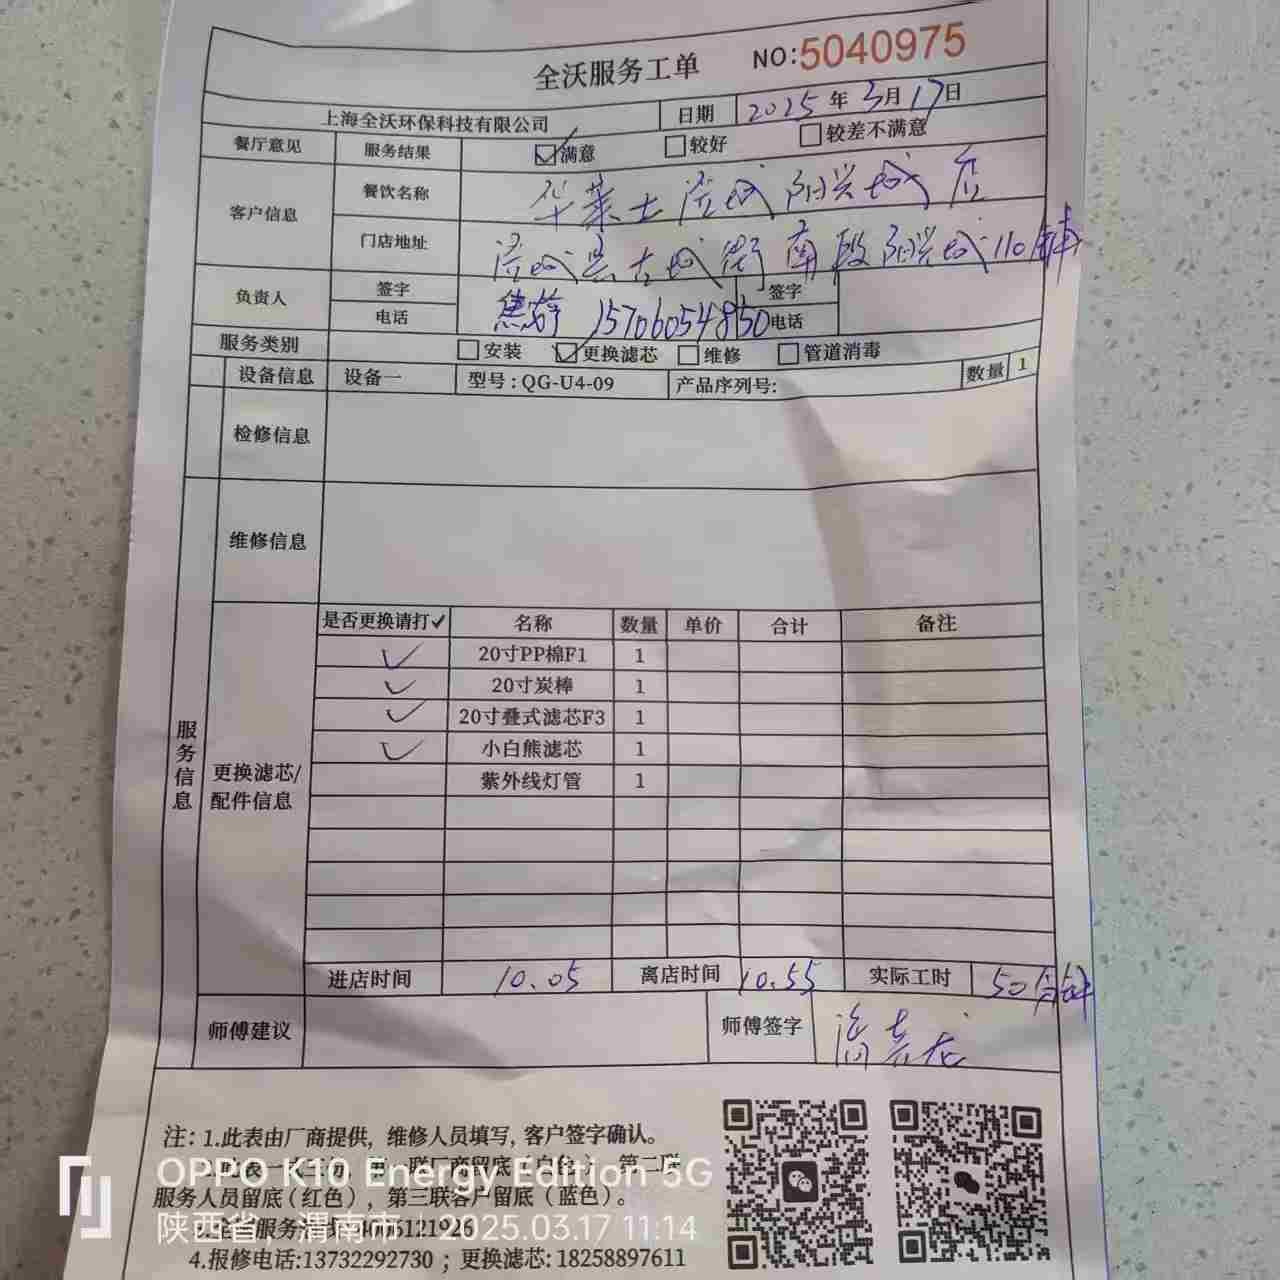 全沃服务工单 NO:5040975
上海全沃环保科技有限公司 日期 2025年3月17日
餐厅意见 服务结果 ☑满意 ☐较好 ☐较差不满意
客户信息 餐饮名称 华莱士 城阳兴城店
门店地址 城县古城街南段阳兴城110
负责人 签字 焦 签字
电话 15706054850 电话
服务类别 ☐安装 ☑更换滤芯 ☐维修 ☐管道消毒
设备信息 设备一 型号:QG-U4-09 产品序列号: 数量 1
检修信息
维修信息
服务信息
更换滤芯/配件信息
是否更换请打✓ 名称 数量 单价 合计 备注
✓ 20寸PP棉F1 1
✓ 20寸炭棒 1
✓ 20寸叠式滤芯F3 1
✓ 小白熊滤芯 1
紫外线灯管 1
进店时间 10.05 离店时间 10.55 实际工时 50分钟
师傅建议 师傅签字
注:1.此表由厂商提供,维修人员填写,客户签字确认。
联厂商留底(白色) 第二联
服务人员留底(红色),第三联客户留底(蓝色)。
4.报修电话:13732292730 ; 更换滤芯: 18258897611
OPPO K10 Energy Edition 5G
陕西省, 渭南市 | 2025.03.17 11:14